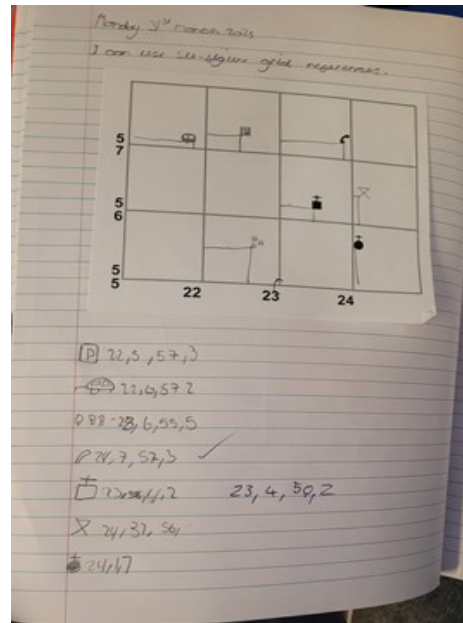 Monday 31st March 2025
I can use six-figure grid references.
P
5
7
5
6
5
5
22 23 24
P 22,5,57,3
22,0,57 2
88-23,6,55,5
24,7,57,3 ✓
23, 4, 50, 2
X 24,37, 56,
24,17